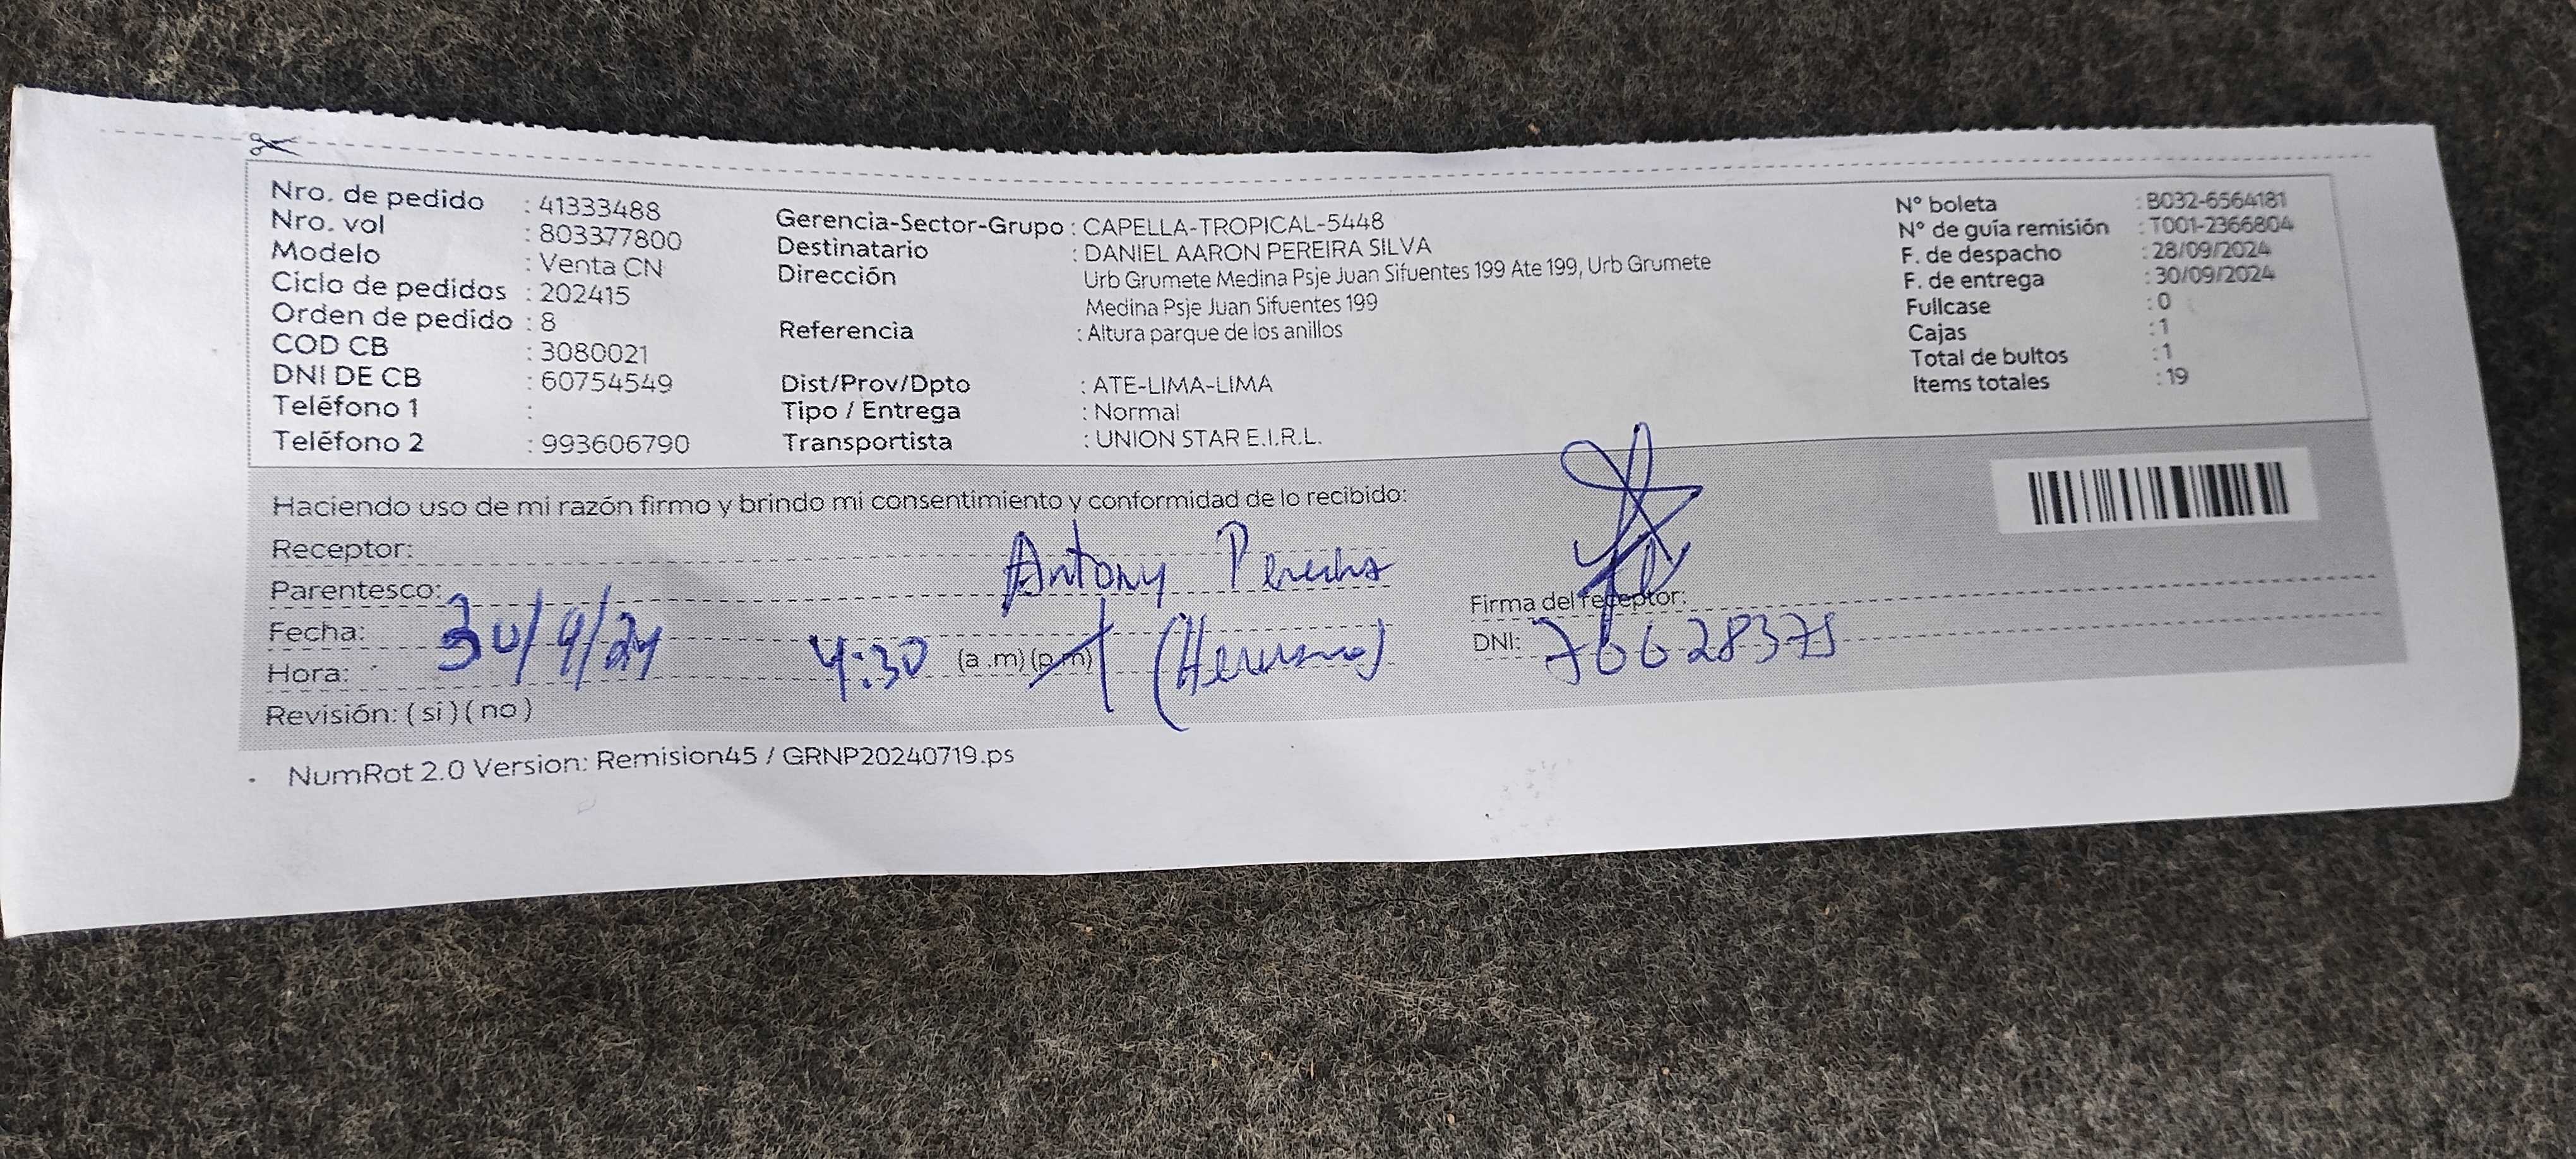 Nro. de pedido : 41333488
Nro. vol : 803377800
Modelo : Venta CN
Ciclo de pedidos : 202415
Orden de pedido : 8
COD CB : 3080021
DNI DE CB : 60754549
Teléfono 1 :
Teléfono 2 : 993606790
Gerencia-Sector-Grupo : CAPELLA-TROPICAL-5448
Destinatario : DANIEL AARON PEREIRA SILVA
Dirección Urb Grumete Medina Psje Juan Sifuentes 199 Ate 199, Urb Grumete
Medina Psje Juan Sifuentes 199
Referencia : Altura parque de los anillos
Dist/Prov/Dpto : ATE-LIMA-LIMA
Tipo / Entrega : Normal
Transportista : UNION STAR E.I.R.L.
N° boleta : B032-6564181
N° de guía remisión : T001-2366804
F. de despacho : 28/09/2024
F. de entrega : 30/09/2024
Fullcase : 0
Cajas : 1
Total de bultos : 1
Items totales : 19
Haciendo uso de mi razón firmo y brindo mi consentimiento y conformidad de lo recibido:
Receptor: Antony
Parentesco:
Fecha: 30/9/24
Hora: 4:30 (a .m)(p.m) (Hermano)
Revisión: (si)(no)
Firma del receptor:
DNI:
NumRot 2.0 Version: Remision45 / GRNP20240719.ps